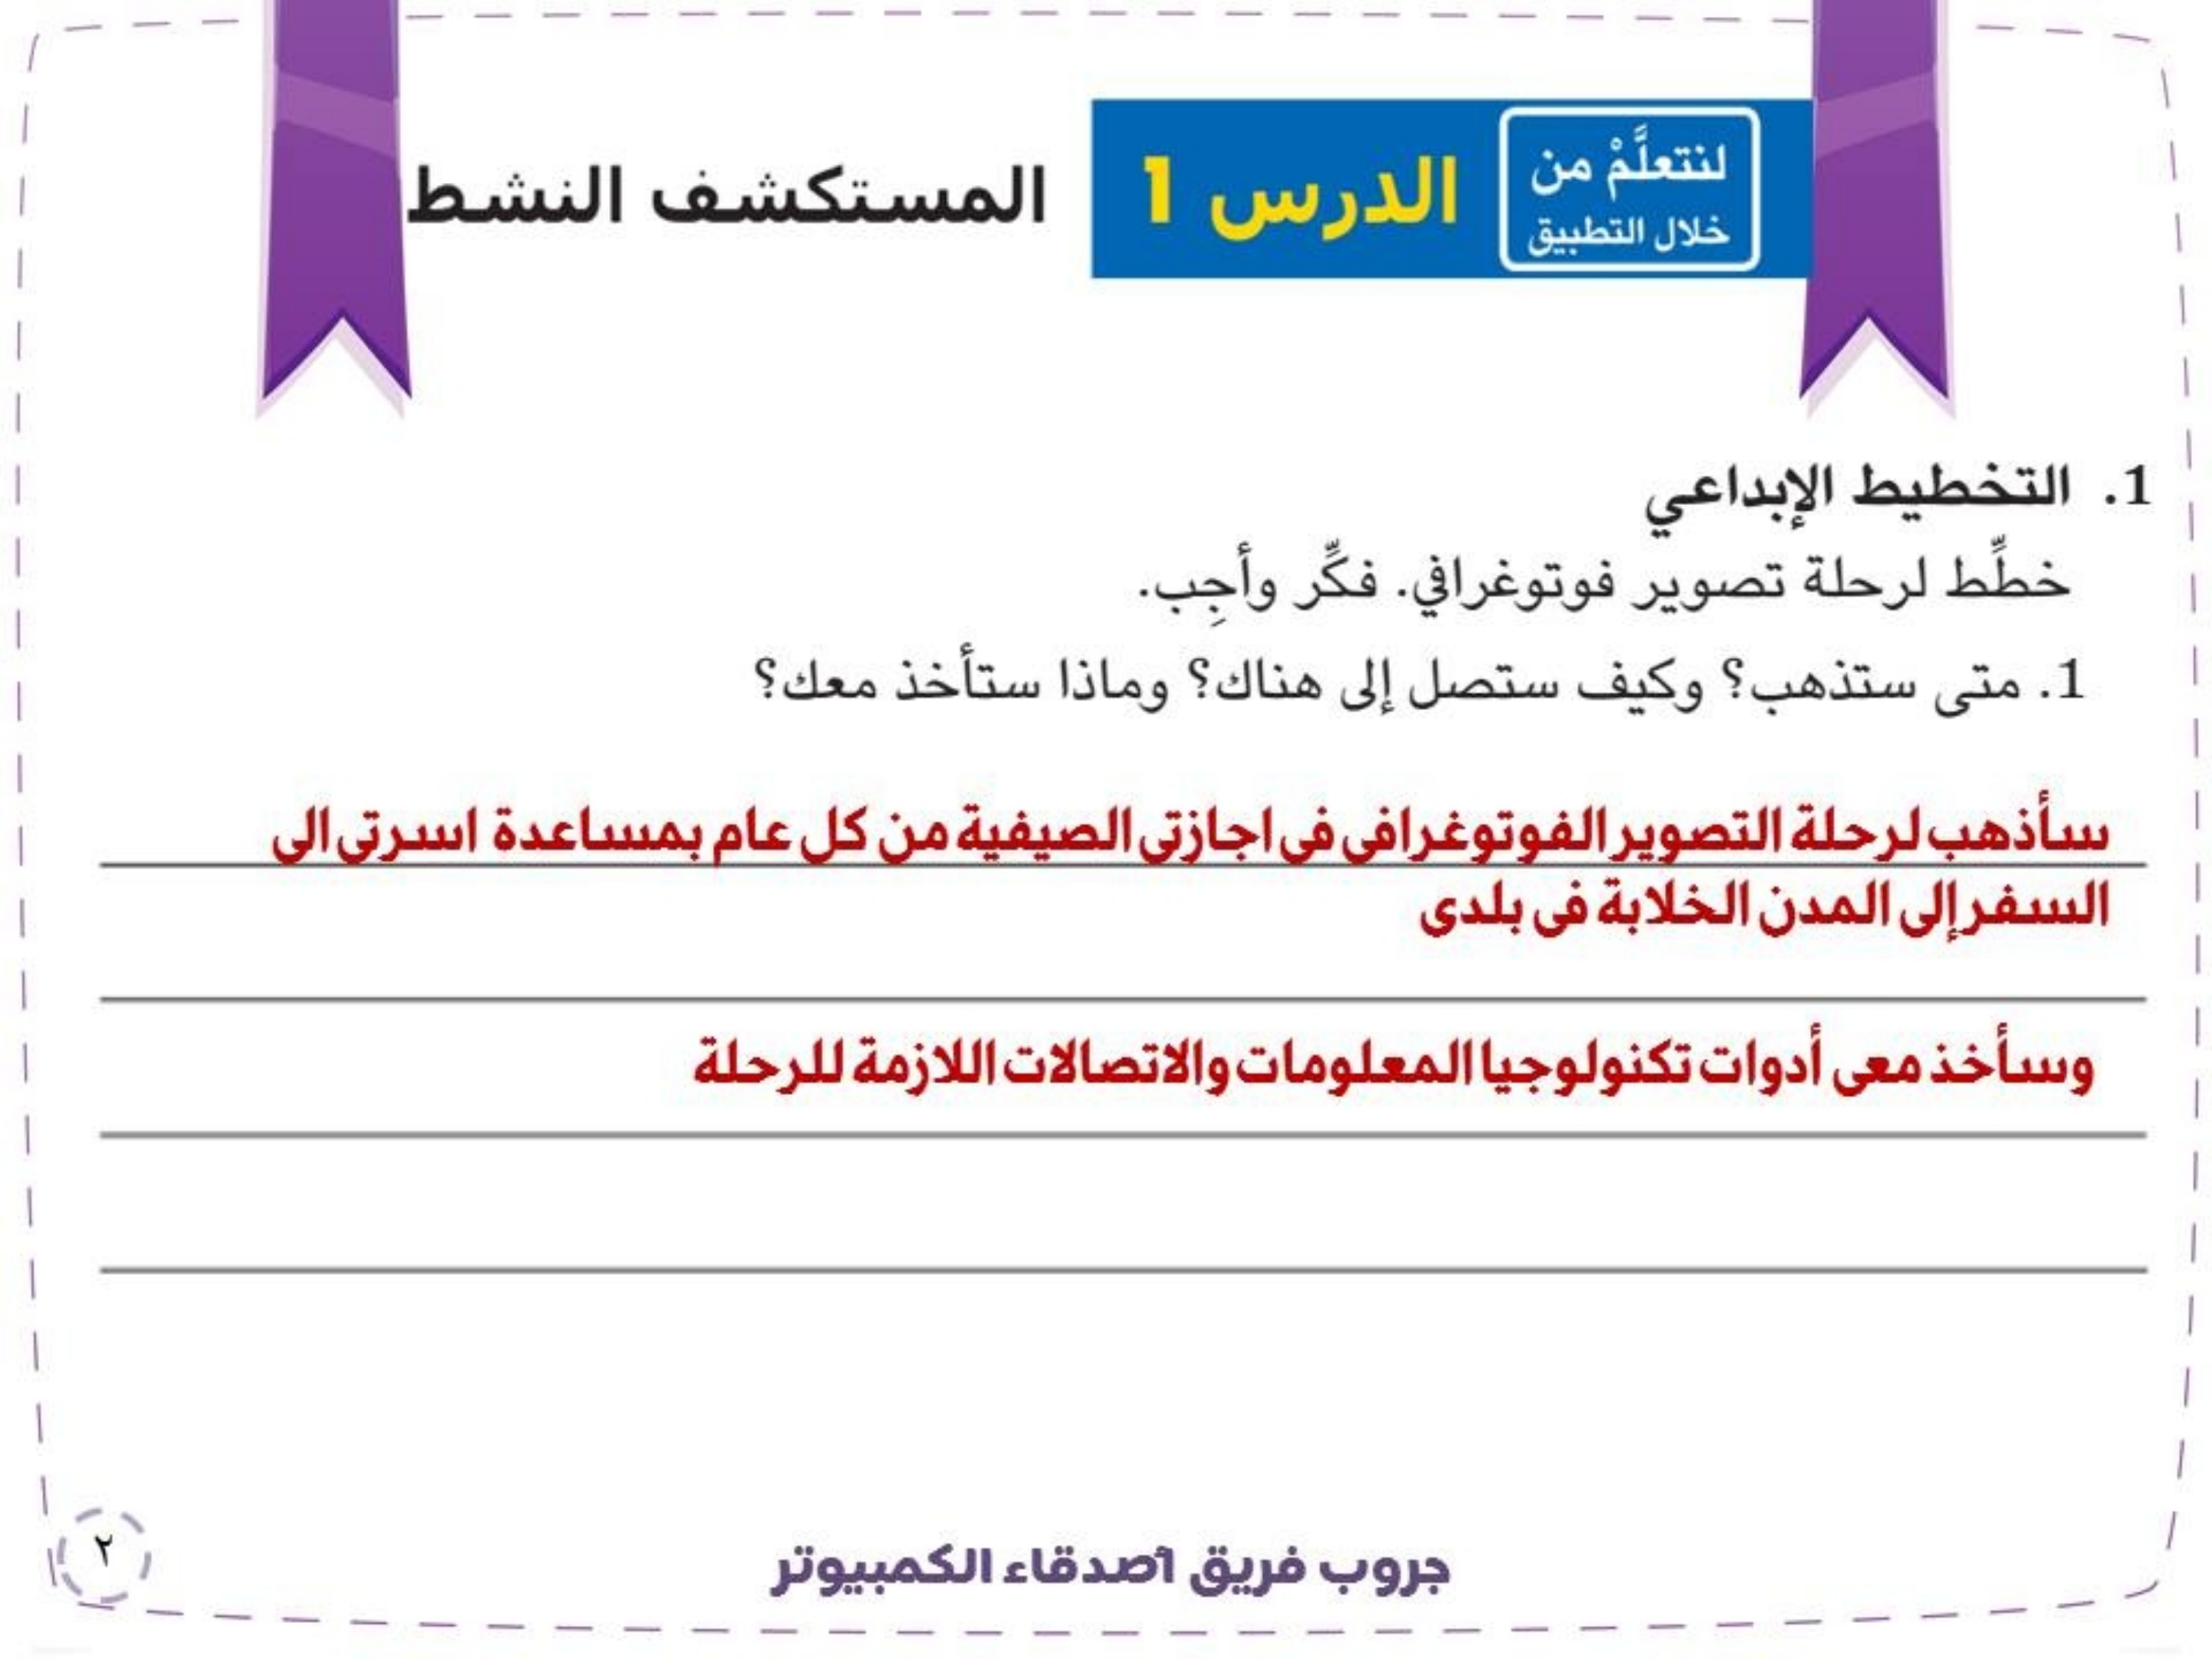 لنتعلَّمْ من
خلال التطبيق
الدرس 1
المستكشف النشط
1. التخطيط الإبداعي
خطِّط لرحلة تصوير فوتوغرافي. فكِّر وأجِب.
1. متى ستذهب؟ وكيف ستصل إلى هناك؟ وماذا ستأخذ معك؟
سأذهب لرحلة التصوير الفوتوغرافى فى اجازتى الصيفية من كل عام بمساعدة اسرتى الى
السفر إلى المدن الخلابة فى بلدى
وسأخذ معى أدوات تكنولوجيا المعلومات والاتصالات اللازمة للرحلة
جروب فريق أصدقاء الكمبيوتر
٢